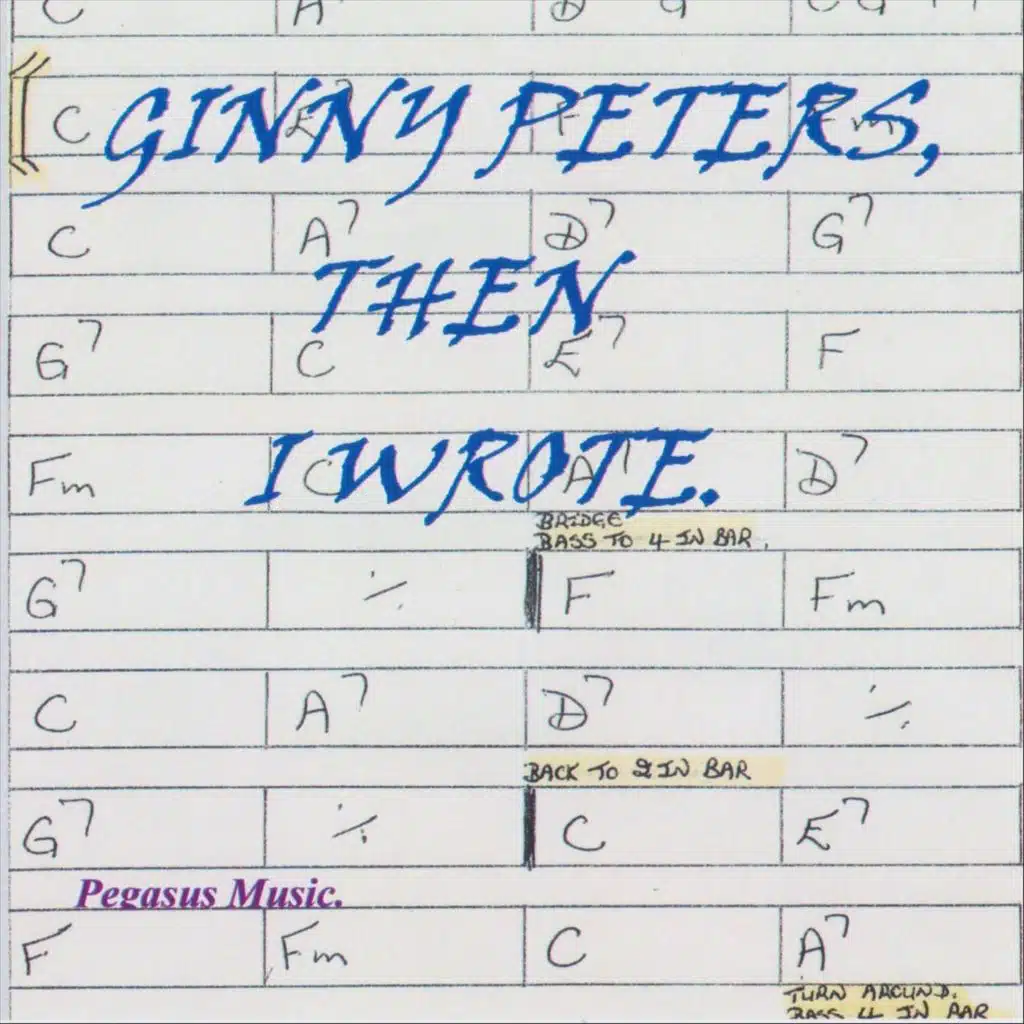 C A7 D G
GINNY PETERS,
C E7 F Fm
C A7 D7 G7
THEN
G7 C E7 F
I WROTE.
Fm C A7 D7
BRIDGE
BASS TO 4 IN BAR.
G7 ٪ F Fm
C A7 D7 ٪
BACK TO 2 IN BAR
G7 ٪ C E7
Pegasus Music.
F Fm C A7
TURN AROUND.
BASS 4 IN BAR